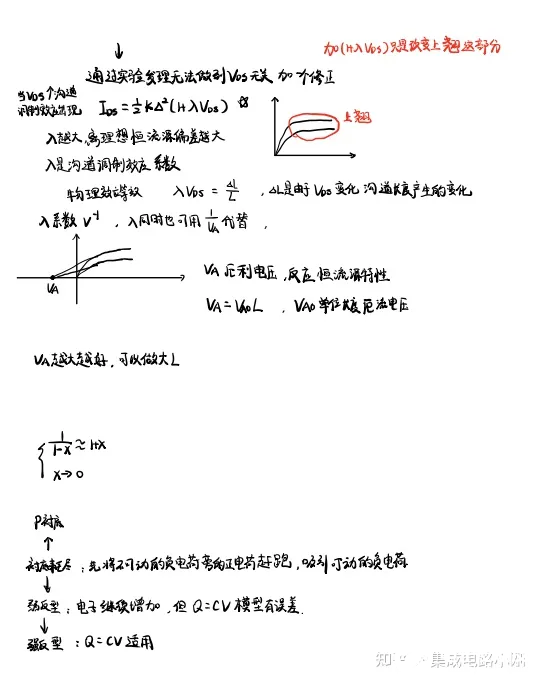 加(1+λVDS)只是改变上翘这部分
通过实验发现无法做到VDS无关 加个修正
当VDS个沟道
调制效应出现
IDS = 1/2 KΔ²(1+λVDS) ☆
上翘
λ越大,离理想恒流源偏差越大
λ是沟道调制效应系数
物理效应等效 λVDS = ΔL/L , ΔL是由于VDS变化 沟道长度产生的变化
λ系数 V⁻¹ , λ同时也可用 1/VA 代替 ,
VA
VA 厄利电压, 反应恒流源特性
VA = VA0L , VA0 单位长度厄利电压
VA越大越好, 可以做大L
1/(1-X) ≈ 1+X
X→0
P衬底
衬底耗尽 : 先将不可动的负电荷旁的正电荷赶跑, 吸引可动的负电荷
弱反型 : 电子继续增加, 但 Q=CV 模型有误差.
强反型 : Q=CV 适用
知乎 集成电路小